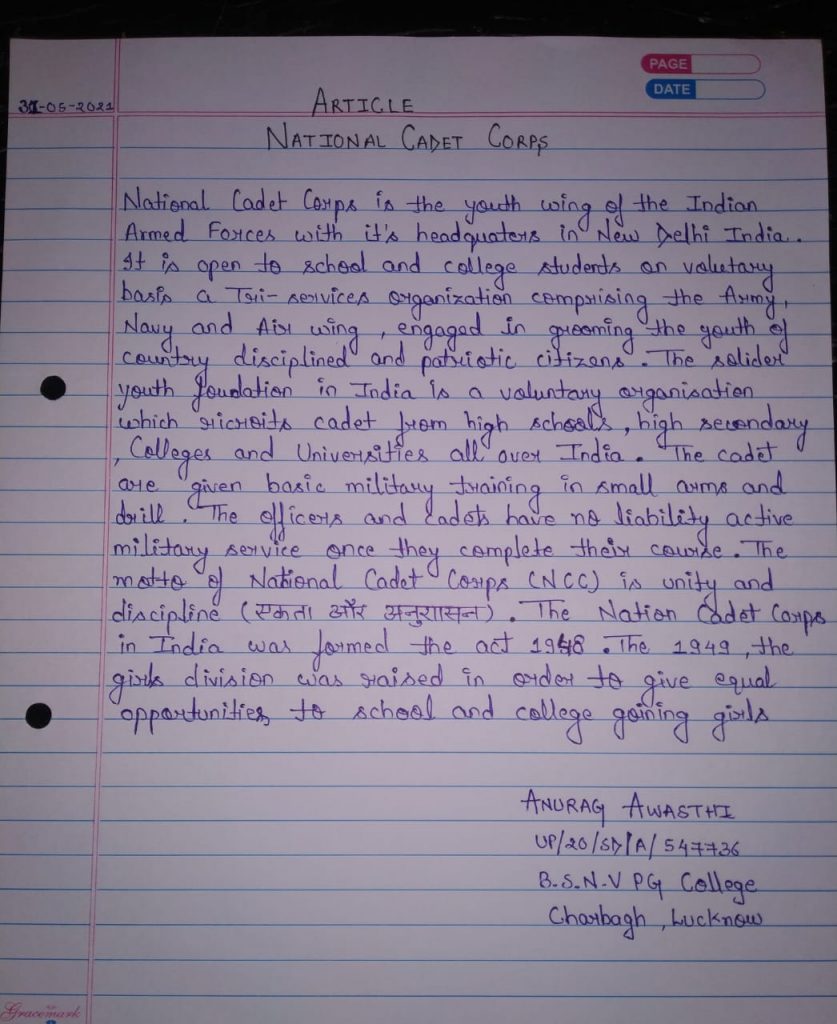 PAGE
DATE
31-05-2021
ARTICLE
NATIONAL CADET CORPS
National Cadet Corps is the youth wing of the Indian
Armed Forces with it's headquaters in New Delhi India.
It is open to school and college students on voluetary
basis a Tri-services organization comprising the Army,
Navy and Air wing, engaged in grooming the youth of
country disciplined and patriotic citizens. The solider
youth foudation in India is a voluntary organisation
which ricroits cadet from high schools, high secondary
, Colleges and Universities all over India. The cadet
are given basic military training in small arms and
drill. The officers and cadets have no liability active
military service once they complete their course. The
motto of National Cadet Corps (NCC) is unity and
discipline (एकता और अनुशासन). The Nation Cadet Corps
in India was formed the act 1948. The 1949, the
girls division was raised in order to give equal
opportunities to school and college goining girls
ANURAG AWASTHI
UP/20/SD/A/547736
B.S.N.V PG College
Charbagh, Lucknow
Gracemark